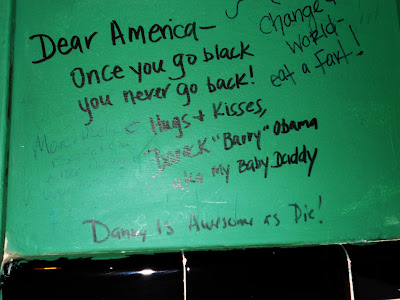 Dear America-
Once you go black
you never go back!
Hugs + Kisses,
Barack "Barry" Obama
aka my Baby Daddy
Change
world-
eat a Fart!
Danny Is Awesome as Die!